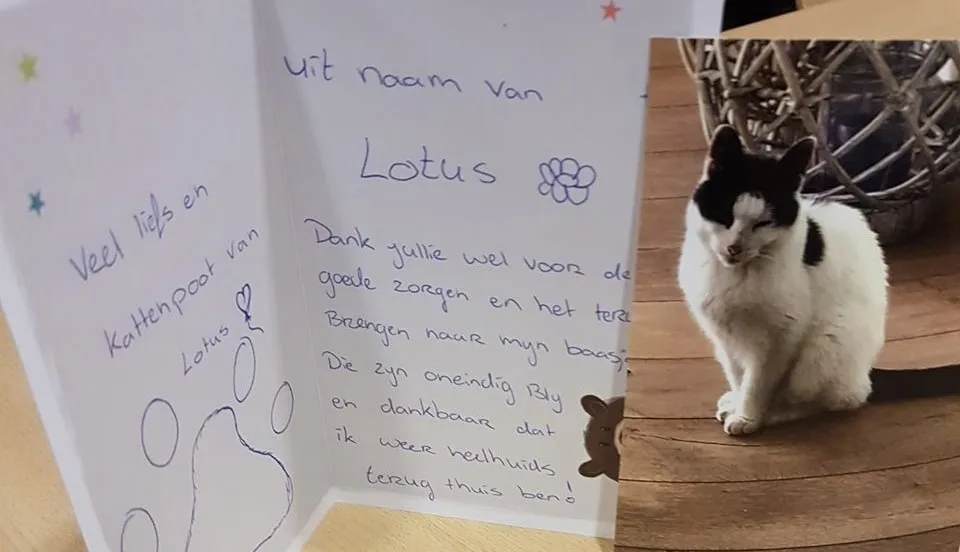 Veel liefs en
kattenpoot van
Lotus
uit naam van
Lotus
Dank jullie wel voor de
goede zorgen en het
Brengen naar mijn
Die zijn oneindig Bly
en dankbaar dat
ik weer heelhuids
terug thuis ben!